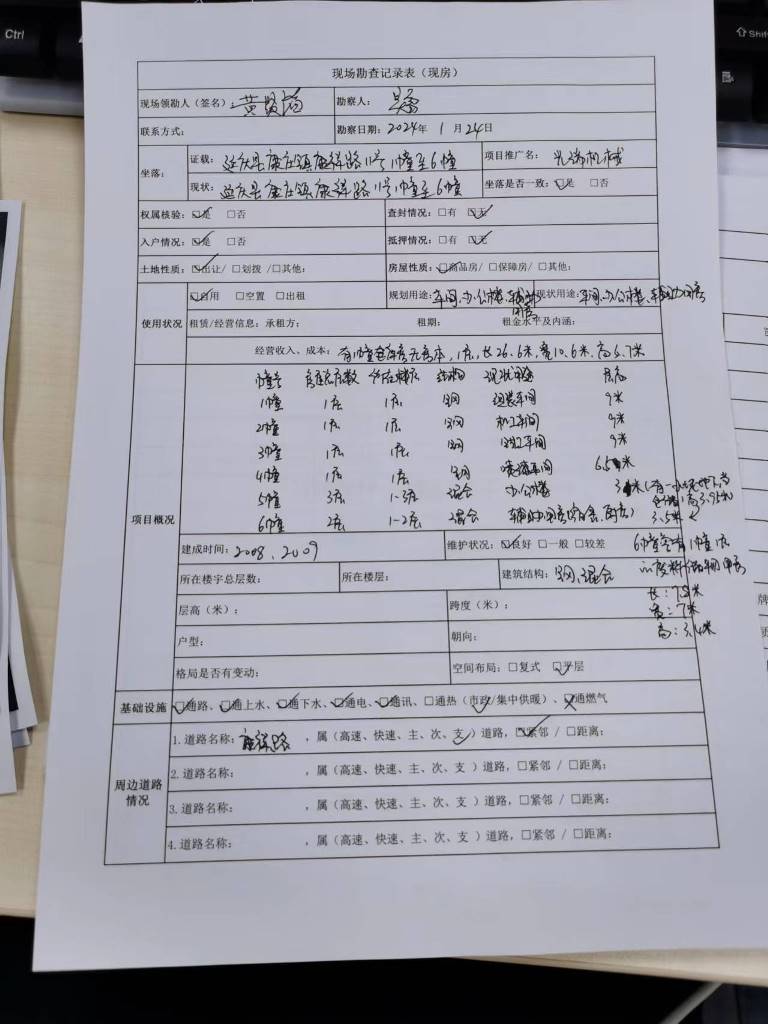 Ctrl
Shift
现场勘查记录表（现房）
现场领勘人（签名）： 勘察人：
联系方式： 勘察日期：2024年 1 月 24日
坐落： 证载：延庆县康庄镇康祥路11号1幢至6幢 项目推广名：
现状：延庆县康庄镇康祥路11号1幢至6幢 坐落是否一致：☑是 □否
权属核验：☑是 □否 查封情况：□有 ☑无
入户情况：☑是 □否 抵押情况：□有 ☑无
土地性质：☑出让/ □划拨 /□其他： 房屋性质：☑商品房/ □保障房/ □其他：
使用状况 ☑自用 □空置 □出租 规划用途：车间、办公楼、辅助用房 现状用途：车间、办公楼、辅助用房
租赁/经营信息：承租方： 租期： 租金水平及内涵：
经营收入、成本：有1幢 房无房本，1层，长26.6米，宽10.6米，高6.7米
项目概况
幢号 房屋总层数 所在楼层 结构 现状用途 层高
1幢 1层 1层 钢 组装车间 9米
2幢 1层 1层 钢 机工车间 9米
3幢 1层 1层 钢 车间 9米
4幢 1层 1层 钢 喷漆车间 6.5米
5幢 3层 1-3层 混合 办公楼 3米
高3.95米
6幢 2层 1-2层 混合 辅助用房（宿舍、厨房） 3.5米
建成时间：2008、2009 维护状况：☑良好 □一般 □较差
所在楼宇总层数： 所在楼层： 建筑结构：钢、混合
长：7.8米
宽：7米
高：3.4米
层高（米）： 跨度（米）：
户型： 朝向：
格局是否有变动： 空间布局：□复式 ☑平层
基础设施 ☑通路、☑通上水、☑通下水、☑通电、☑通讯、□通热（市政/集中供暖）、☒通燃气
周边道路情况
1.道路名称：康祥路 ，属（高速、快速、主、次、支✓）道路，☑紧邻 / □距离：
2.道路名称： ，属（高速、快速、主、次、支 ）道路，□紧邻 / □距离：
3.道路名称： ，属（高速、快速、主、次、支 ）道路，□紧邻 / □距离：
4.道路名称： ，属（高速、快速、主、次、支 ）道路，□紧邻 / □距离：